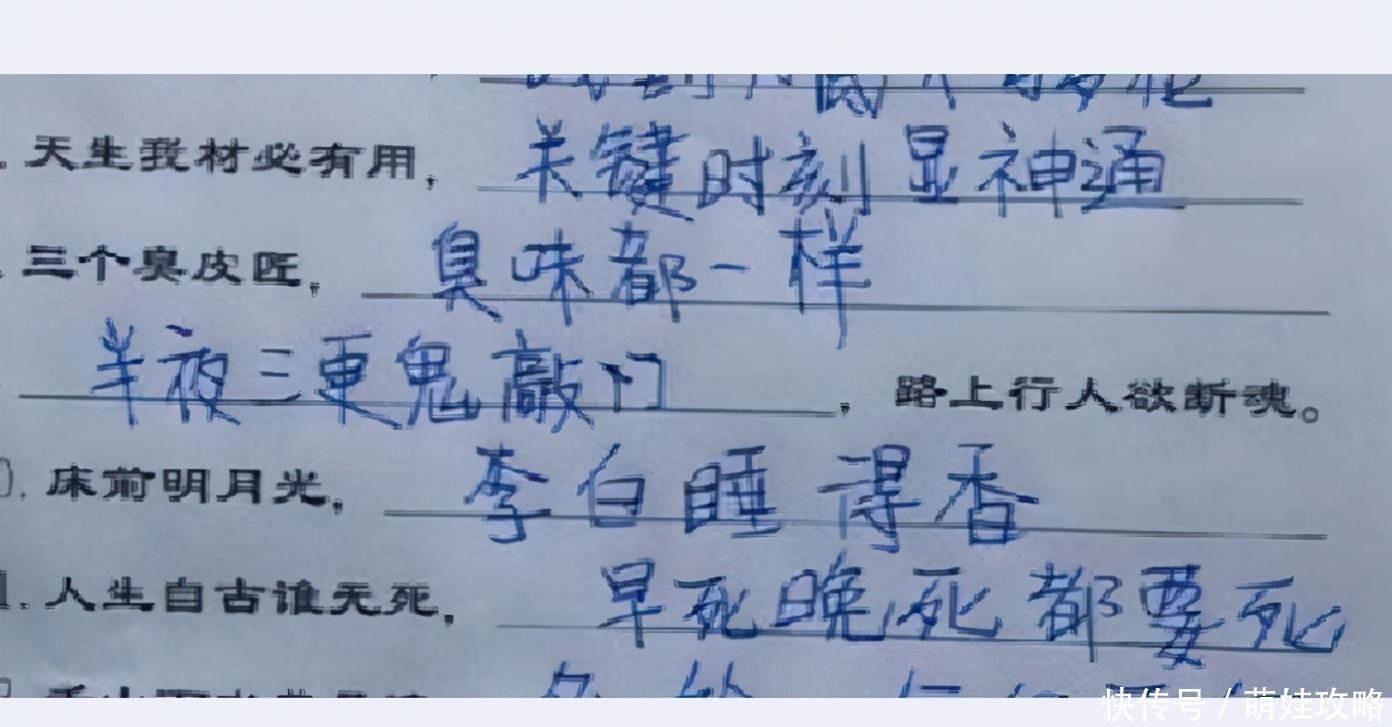 天生我材必有用，关键时刻显神通
三个臭皮匠，臭味都一样
半夜三更鬼敲门，路上行人欲断魂。
床前明月光，李白睡得香
人生自古谁无死，早死晚死都要死
快传号/萌娃攻略